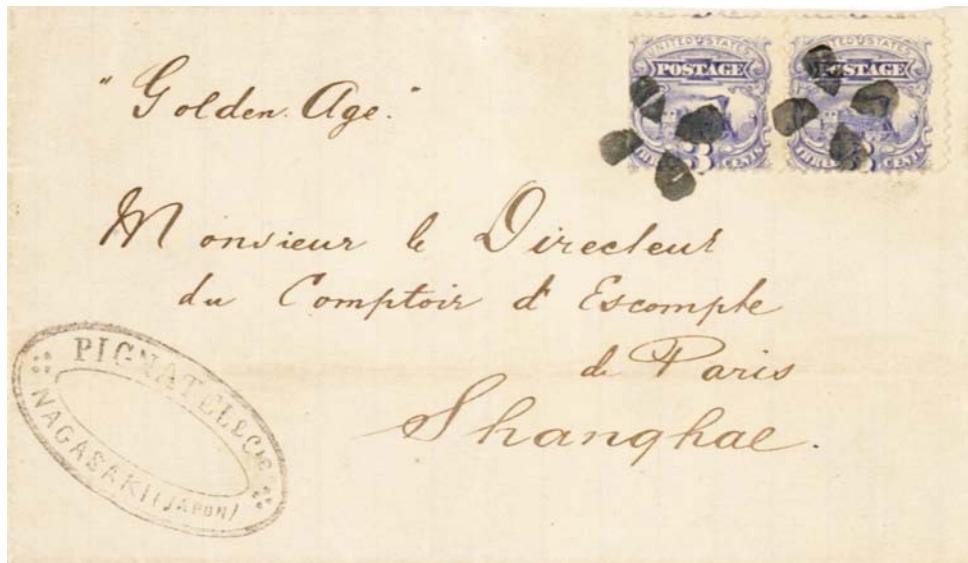 "Golden Age."
UNITED STATES
POSTAGE
3
THREE CENTS
UNITED STATES
POSTAGE
3
THREE CENTS
Monsieur le Directeur
du Comptoir d'Escompte
de Paris
Shanghae.
PIGNATEL & Cie
NAGASAKI (JAPON)